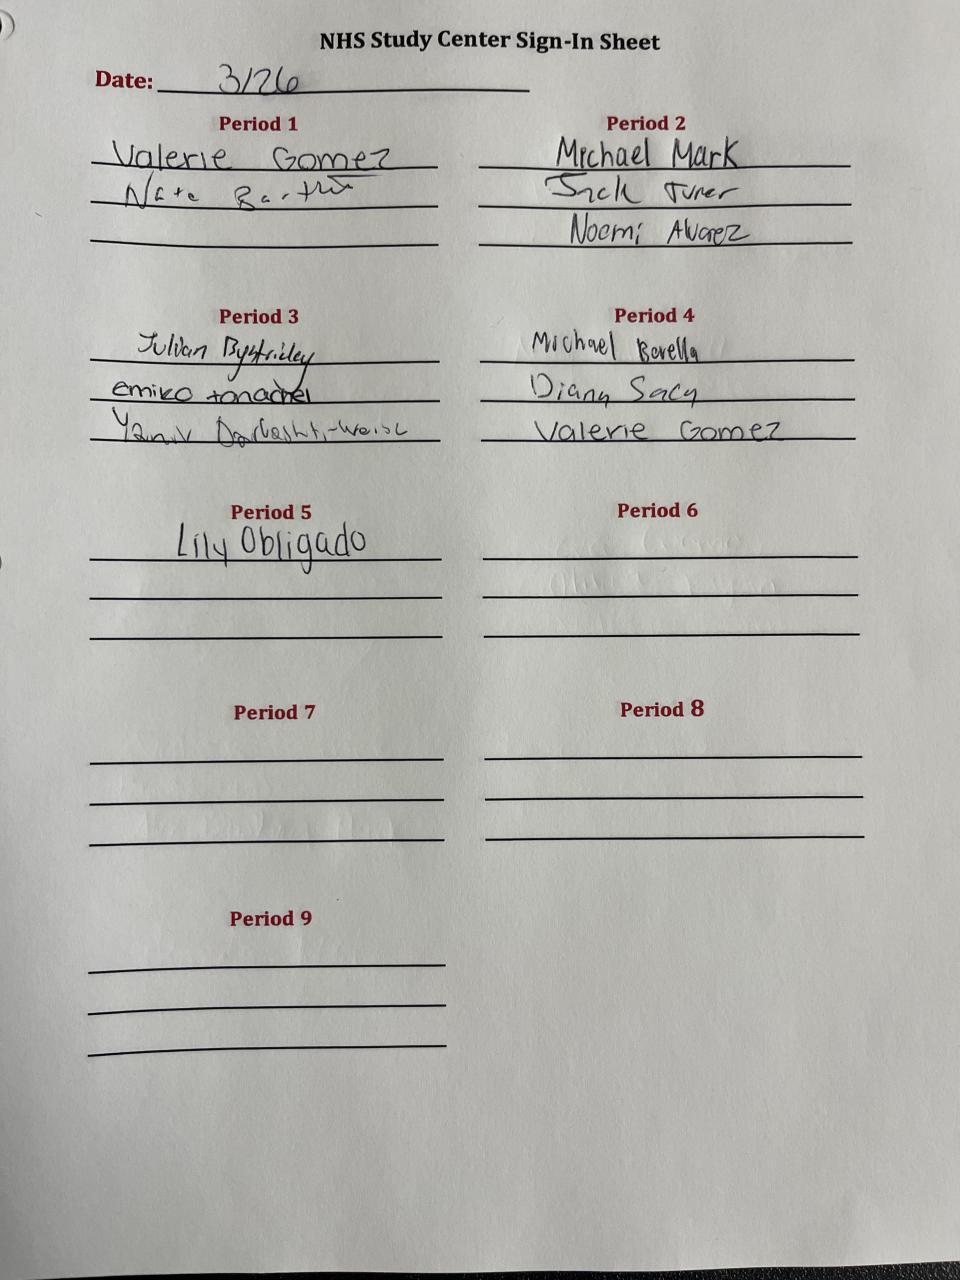 NHS Study Center Sign-In Sheet
Date: 3/26
Period 1
Valerie Gomez
Nate
Period 2
Michael Mark
Jack Turer
Noemi Alvarez
Period 3
Julian
emiko tonachel
Yaniv
Period 4
Michael Borella
Diana Sacy
Valerie Gomez
Period 5
Lily Obligado
Period 6
Period 7
Period 8
Period 9